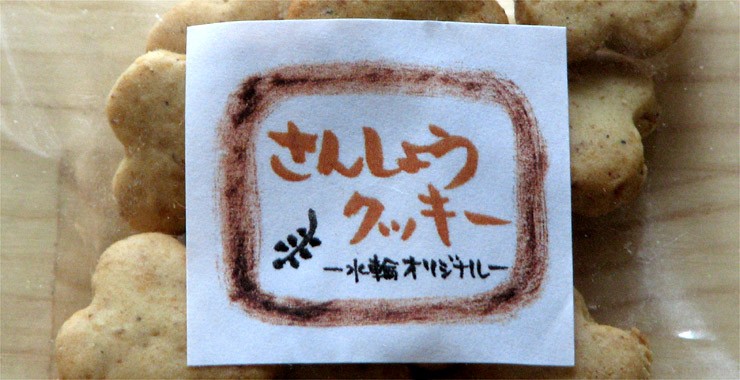 さんしょう
クッキー
ー水輪オリジナルー